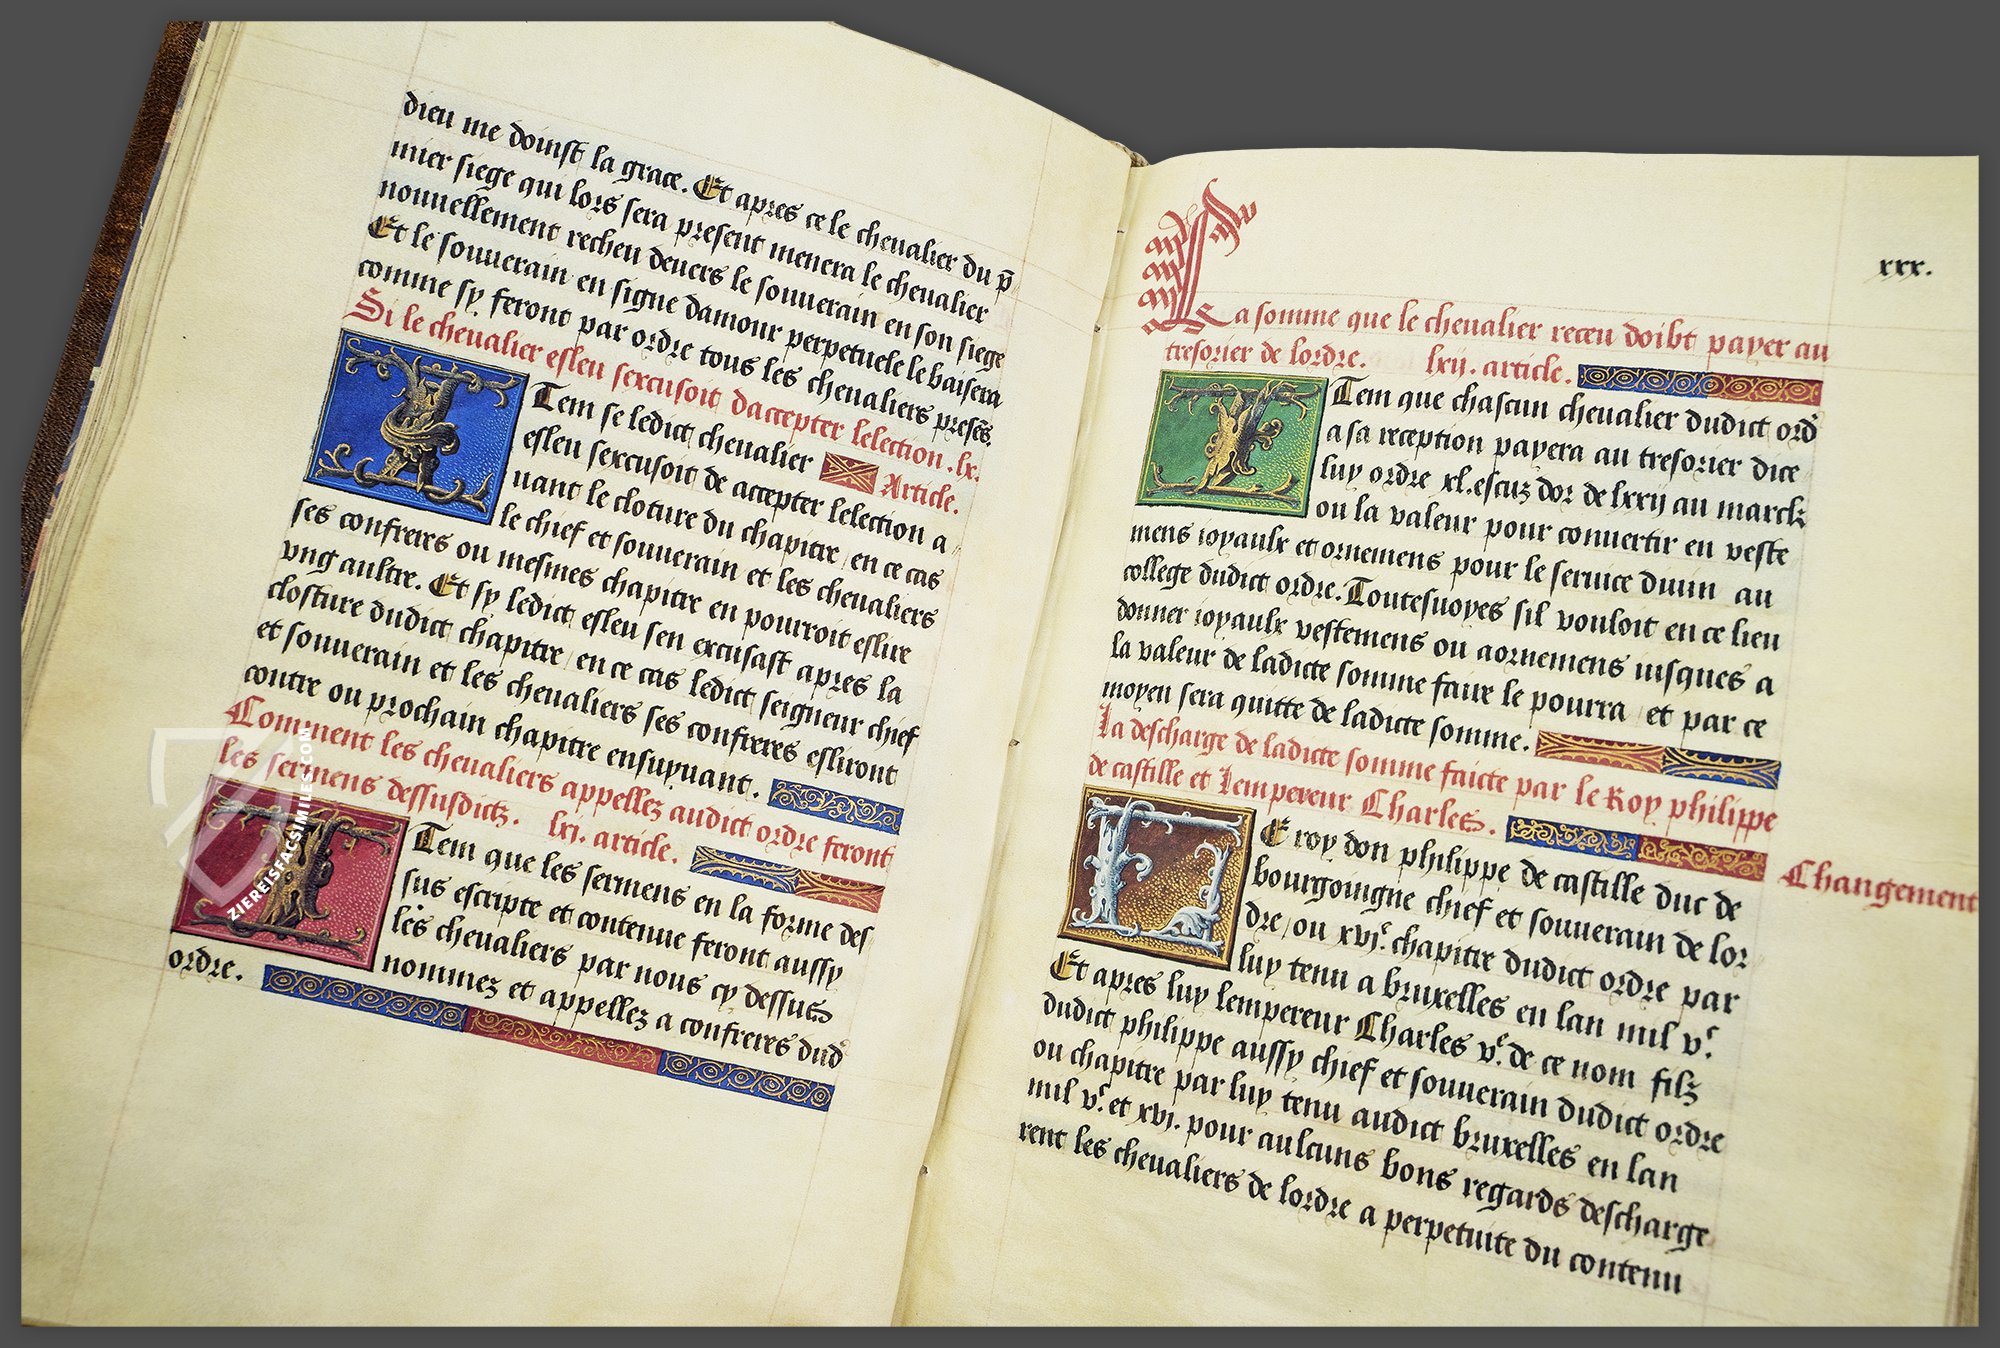 dieu me doinst la grace. Et apres ce le chevalier du p̄
mier siege qui lors sera present menera le chevalier
nouuellement recheu deuers le souuerain en son siege
Et le souuerain en signe damour perpetuele le baisera
comme sy feront par ordre tous les cheualiers presēs.
Si le cheualier esleu sexcusoit daccepter lelection .lx.
Article.
Item se ledict cheualier
esleu sexcusoit de accepter lelection a
uant le cloture du chapitre / en ce cas
le chief et souuerain et les cheualiers
ses confreres ou mesmes chapitre en pourroit eslire
vng aultre. Et sy ledict esleu sen excusast apres la
closture dudict chapitre / en ce cas ledict seigneur chief
et souuerain et les cheualiers ses confreres esliront
contre ou prochain chapitre ensuyuant.
Comment les cheualiers appellez audict ordre feront
les sermens dessusdictz. lxi. article.
Item que les sermens en la forme des
sus escripte et contenue feront aussy
les cheualiers par nous cy dessus
nommez et appellez a confreres dud
ordre.
xxx.
La somme que le cheualier receu doibt payer au
tresorier de lordre. lxij. article.
Item que chascun cheualier dudict ord
a sa reception payera au tresorier dice
luy ordre xl. escuz dor de lxxij au marck
ou la valeur pour conuertir en veste
mens ioyaulx et ornemens pour le seruice diuin au
college dudict ordre. Toutesuoyes sil vouloit en ce lieu
donner ioyaulx vestemens ou aornemens iusques a
la valeur de ladicte somme faire le pourra / et par ce
moyen sera quitte de ladicte somme.
La descharge de ladicte somme faicte par le Roy philippe
de castille et Lempereur Charles.
Changement
LE roy don philippe de castille duc de
bourgoingne chief et souuerain de lor
dre / ou xvjᵉ. chapitre dudict ordre par
luy tenu a bruxelles en lan mil vᶜ.
Et apres luy lempereur Charles vᵉ. de ce nom filz
dudict philippe aussy chief et souuerain dudict ordre
ou chapitre par luy tenu audict bruxelles en lan
mil vᶜ. et xvj. pour aulcuns bons regards descharge
rent les cheualiers de lordre a perpetuite du contenu
ZIEREISFACSIMILES.COM